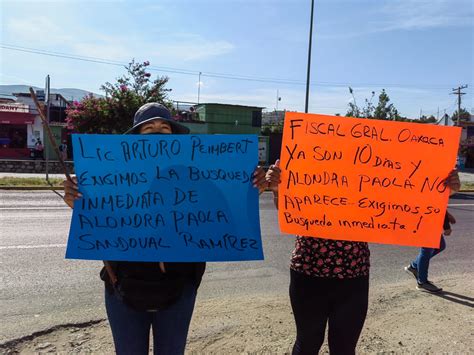 Lic ARTURO PEIMBERT
EXIGIMOS LA BUSQUEDA
INMEDIATA DE
ALONDRA PAOLA
SANDOVAL RAMÍREZ
FISCAL GRAL. OAXACA
YA SON 10 DÍAS Y
ALONDRA PAOLA NO
APARECE-EXIGIMOS SU
BUSQUEDA INMEDIATA!